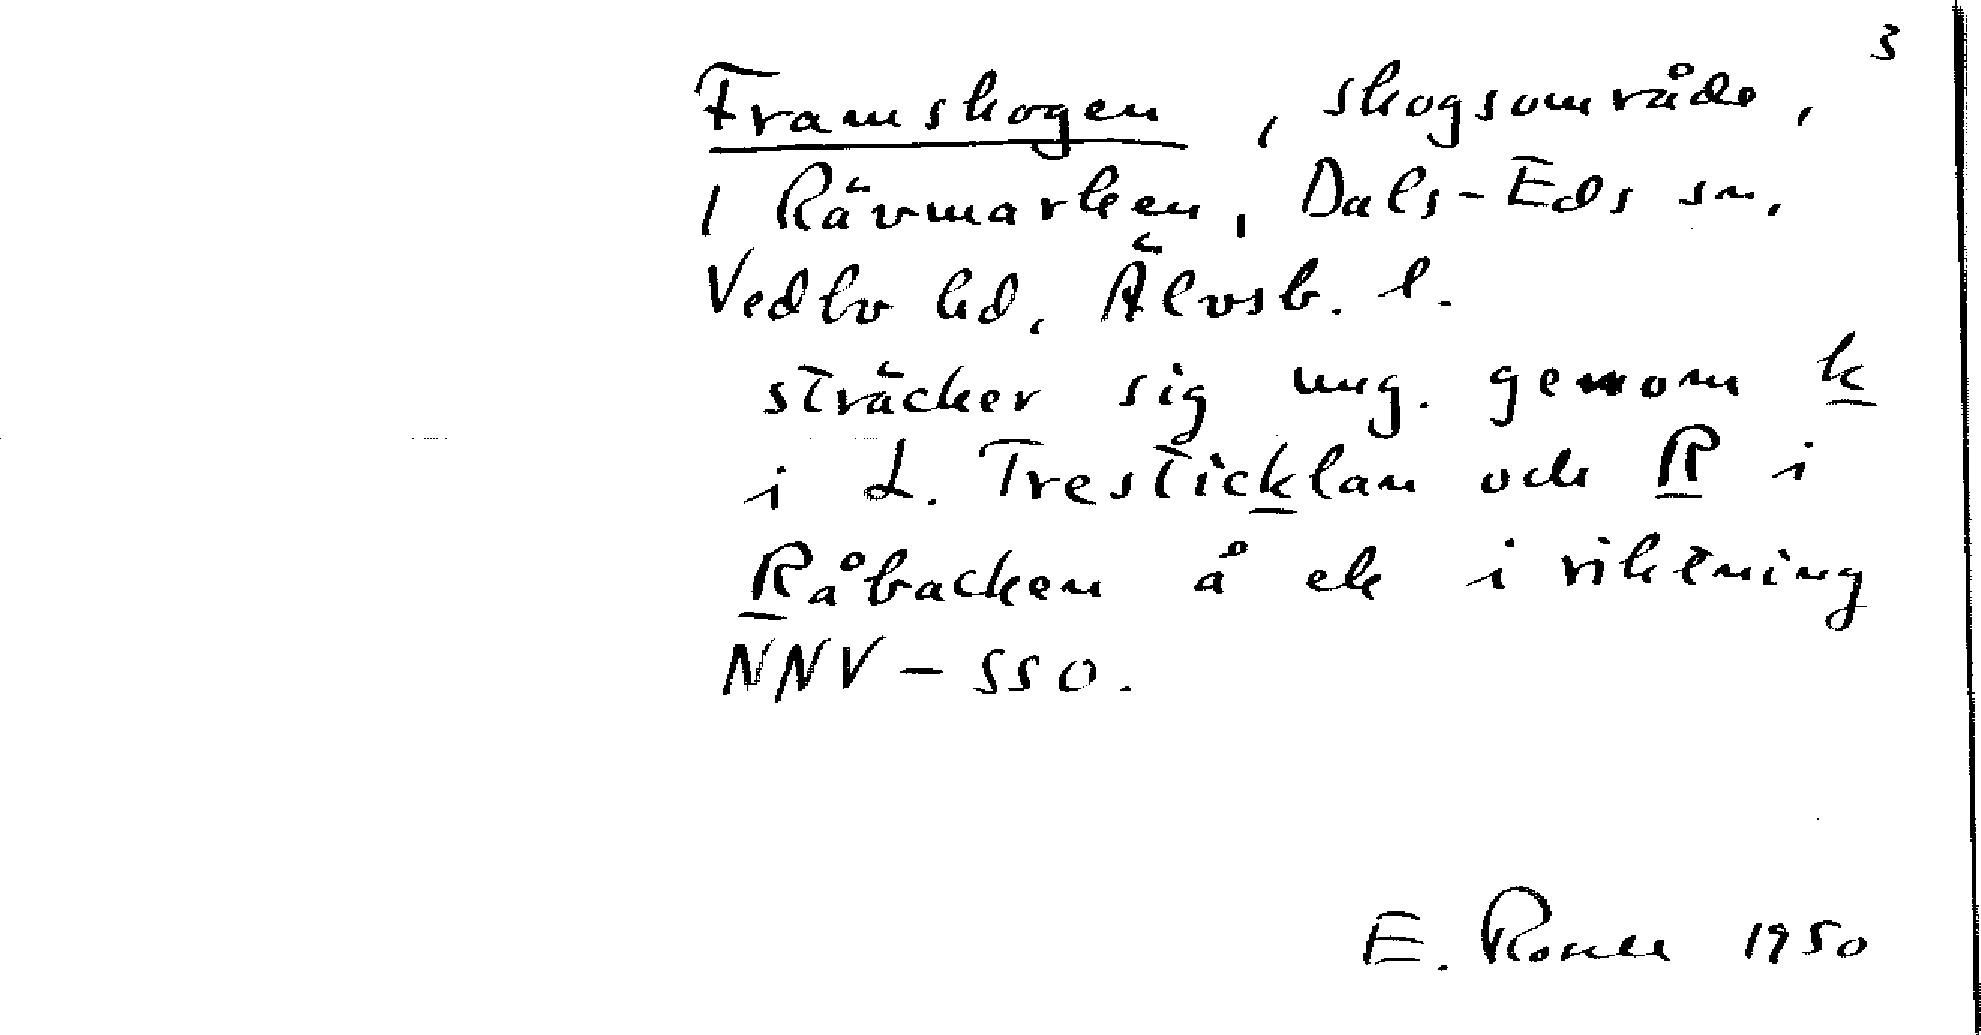 3
Framskogen, skogsområde,
i Rävmarken, Dals-Eds sn,
Vedbo hd, Älvsb. l.
sträcker sig ung. genom k
i L. Tresticklan och R i
Råbacken å ek i riktning
NNV - SSO.
E. 1950